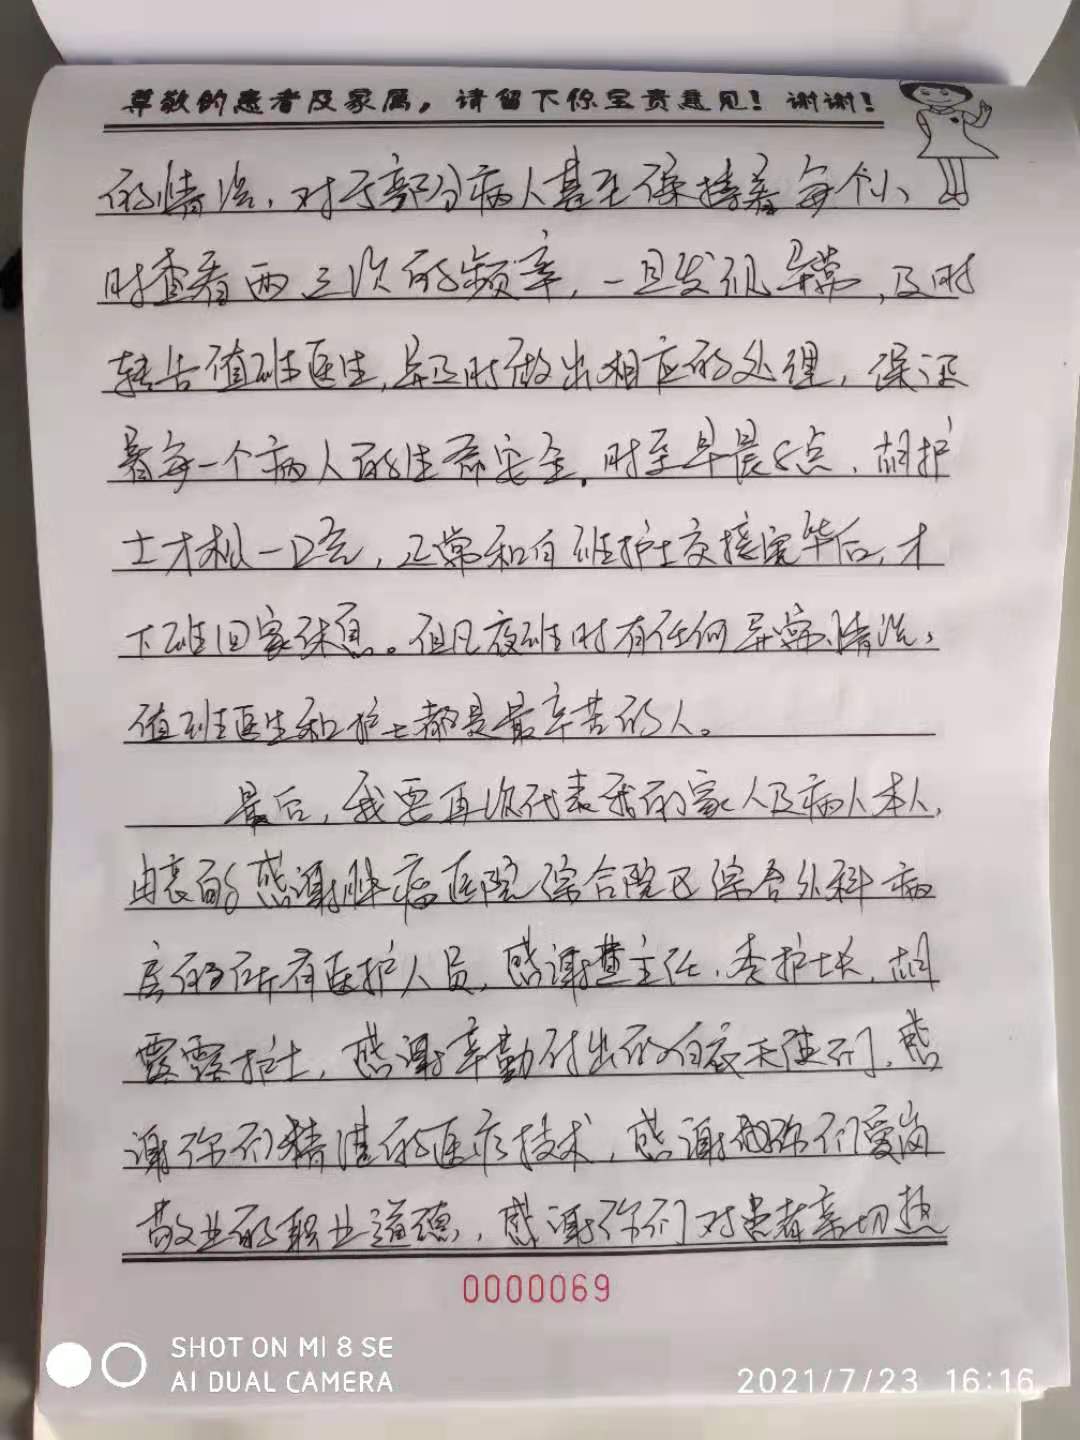 尊敬的患者及家属，请留下你宝贵意见！谢谢！
的情况，对于部分病人甚至保持着每个小
时查看两三次的频率，一旦发现异常，及时
转告值班医生，并及时做出相应的处理，保证
着每一个病人的生命安全。时至早晨8点，胡护
士才松一口气，正常和白班护士交接完毕后，才
下班回家休息。但凡夜班时有任何异常情况，
值班医生和护士都是最辛苦的人。
最后，我要再次代表我的家人及病人本人，
由衷的感谢肿瘤医院综合院区综合外科病
房的所有医护人员，感谢楚主任，李护士长，胡
露露护士，感谢辛勤付出的白衣天使们，感
谢你们精湛的医疗技术，感谢你们爱岗
敬业的职业道德，感谢你们对患者亲切热
0000069
SHOT ON MI 8 SE
AI DUAL CAMERA
2021/7/23 16:16